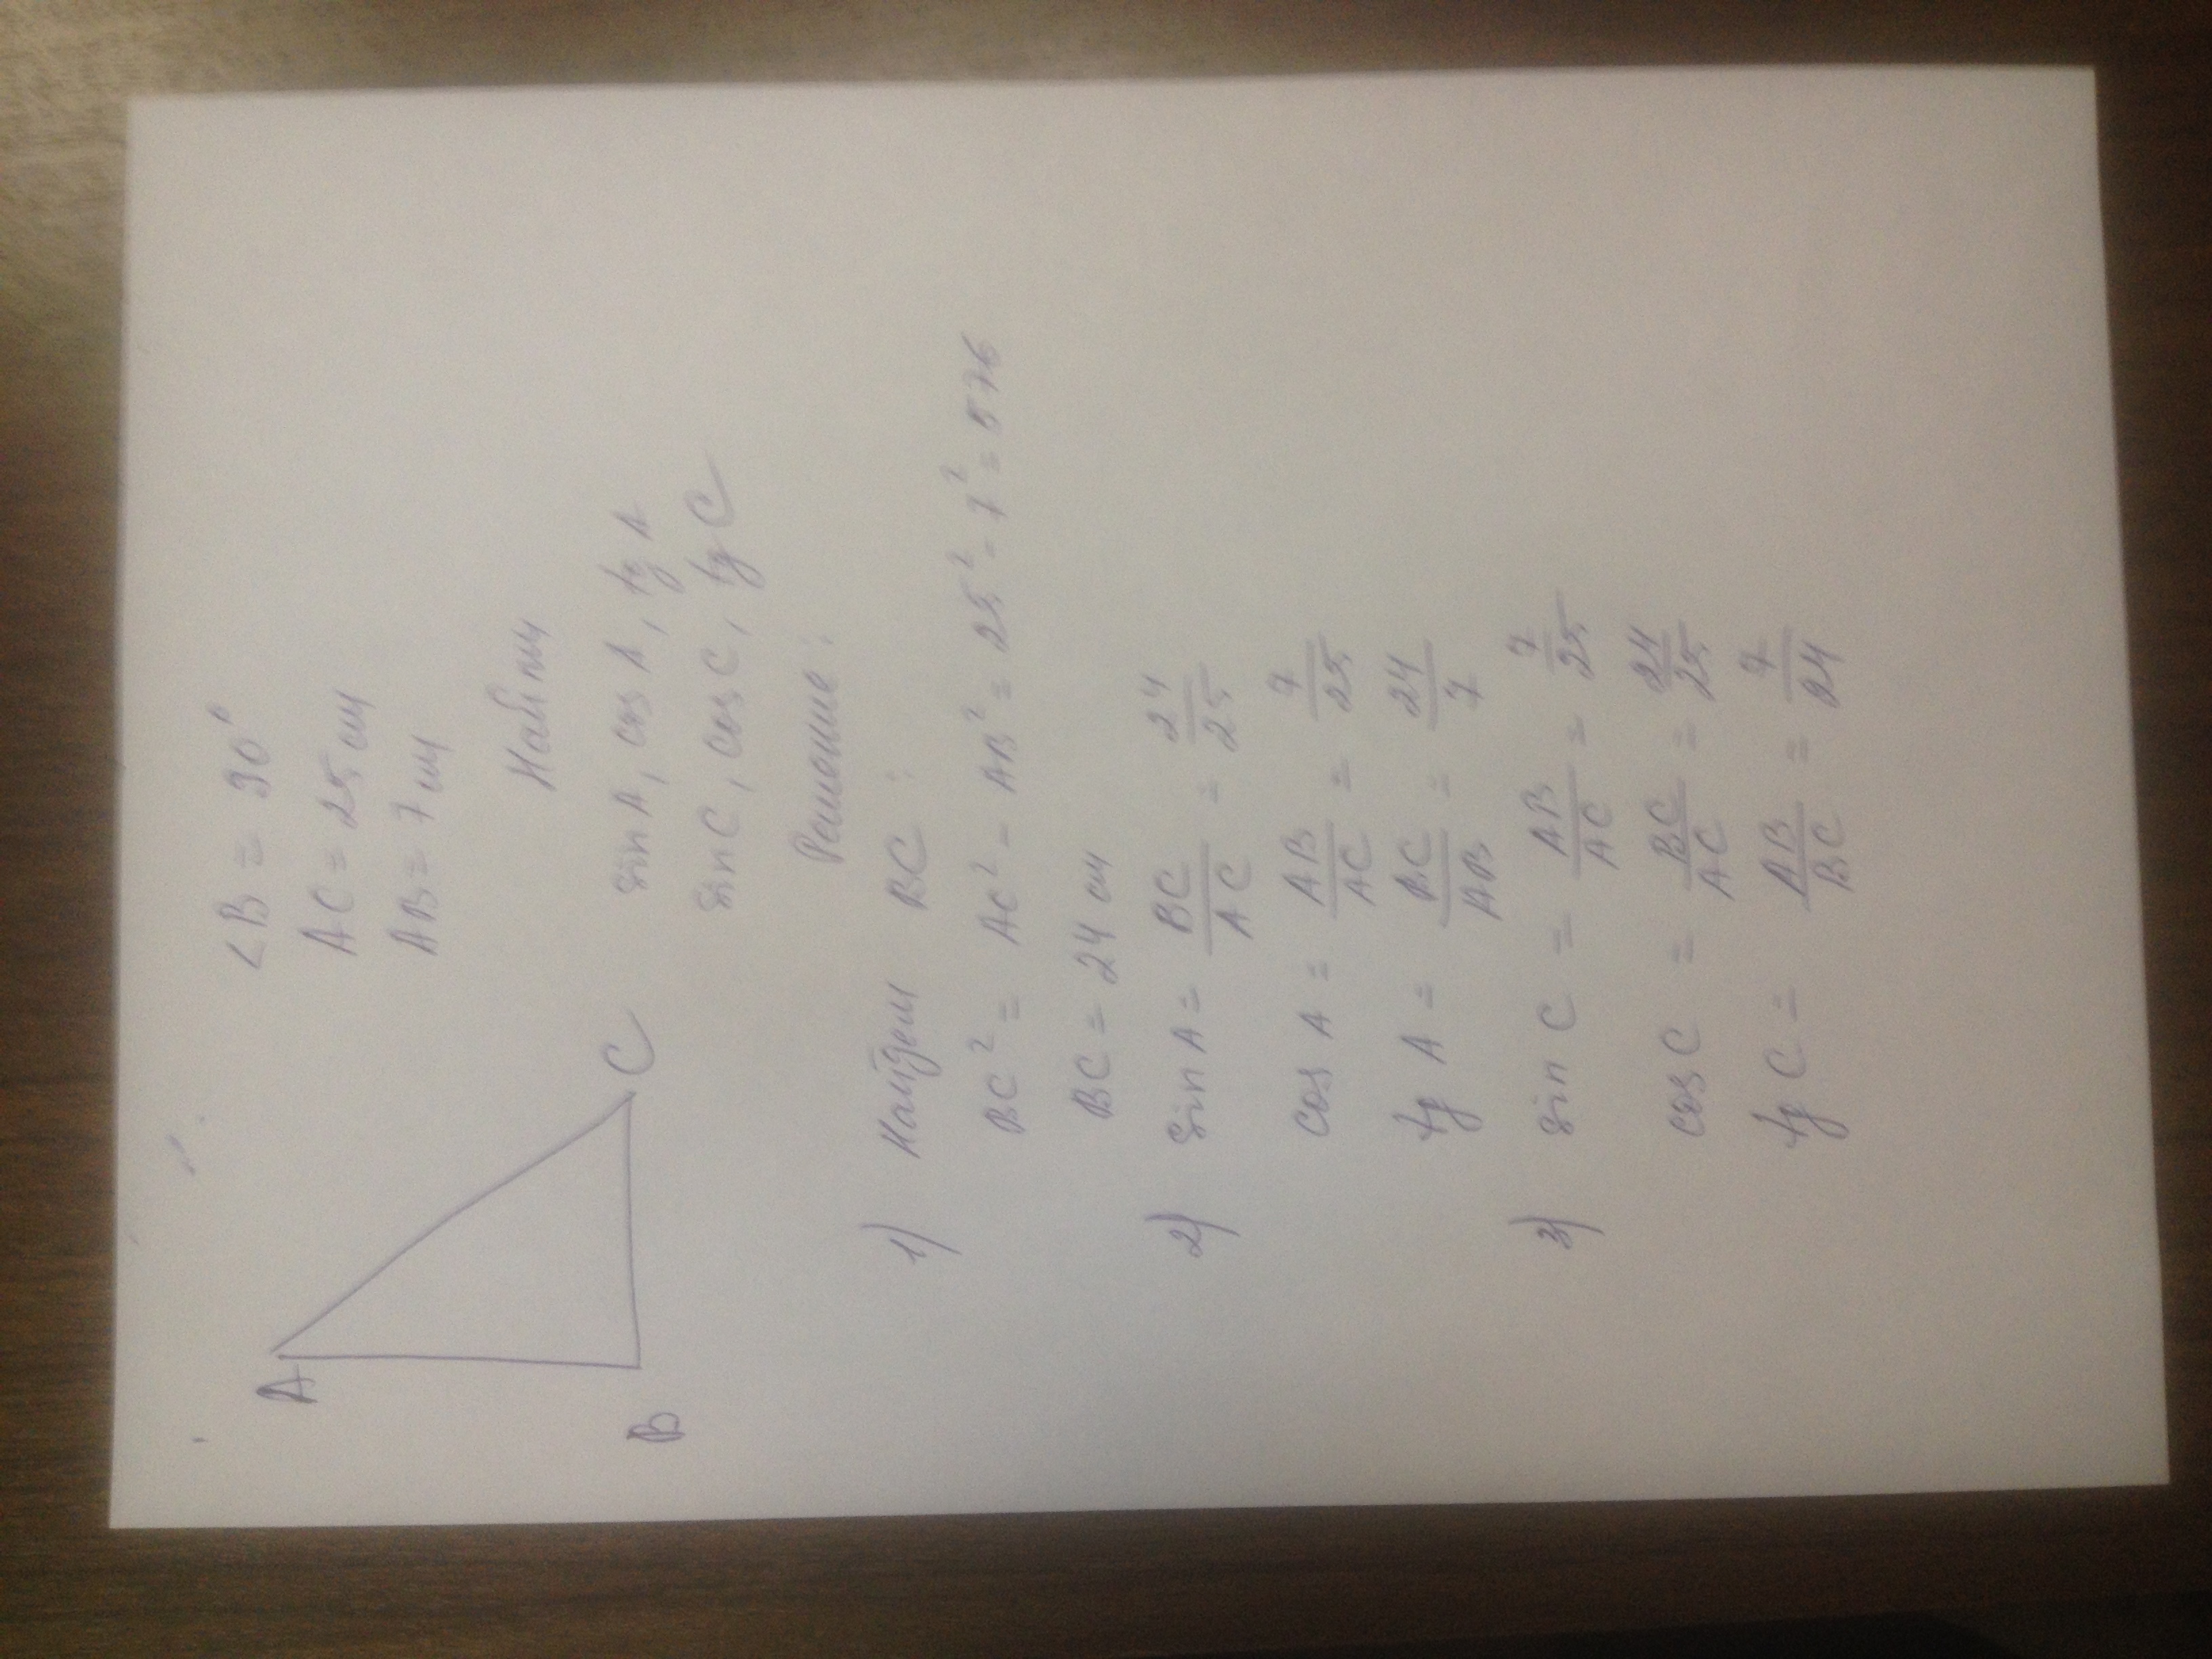 A
B
C
<B = 90°
AC = 25 см
AB = 7 см
Найти
sin A, cos A, tg A
sin C, cos C, tg C
Решение:
1) Найдем BC:
BC² = AC² - AB² = 25² - 7² = 576
BC = 24 см
2) sin A = BC/AC = 24/25
cos A = AB/AC = 7/25
tg A = BC/AB = 24/7
3) sin C = AB/AC = 7/25
cos C = BC/AC = 24/25
tg C = AB/BC = 7/24